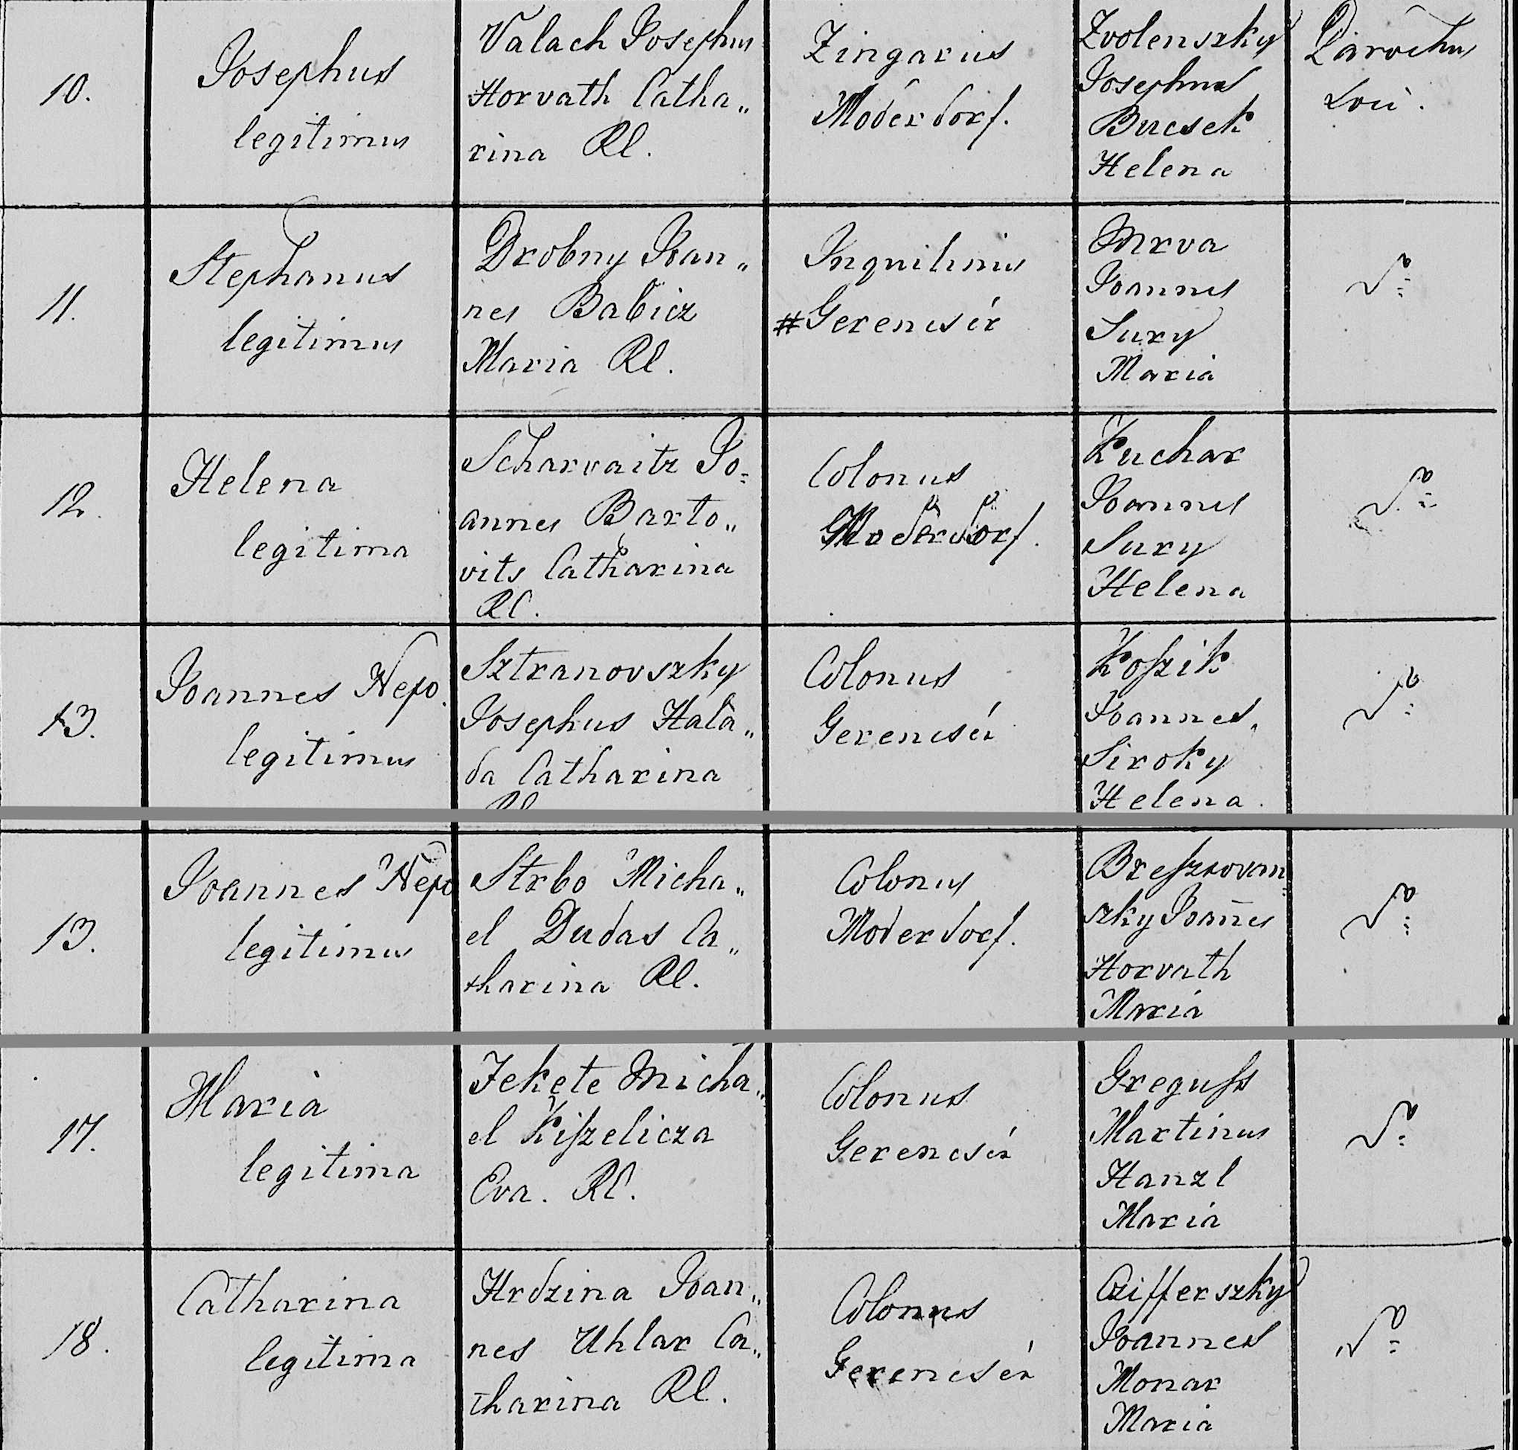 10.
Josephus
legitimus
Valach Josephus
Horvath Catha„
rina RC.
Zingarius
Moderdorf.
Zvolenszky
Josephus
Bucsek
Helena
Parochus
Loci.
11.
Stephanus
legitimus
Drobny Joan„
nes Babicz
Maria RC.
Inquilinus
#Gerencsér
Mrva
Joannes
Sury
Maria
12.
Helena
legitima
Scharvaitz Jo=
annes Barto„
vits Catharina
RC.
Colonus
Moderdorf.
Kuchar
Joannes
Sury
Helena
13.
Joannes Nepo.
legitimus
Sztranovszky
Josephus Hala„
da Catharina
RC
Colonus
Gerencsér
Koszik
Joannes.
Siroky
Helena.
13.
Joannes Nepo
legitimus
Strbo Micha„
el Dudas Ca„
tharina RC.
Colonus
Moderdorf.
Breszrovan
szky Joañes
Horvath
Maria
17.
Maria
legitima
Fekete Micha„
el Kiszelicza
Eva. RC.
Colonus
Gerencsér
Greguss
Martinus
Hanzl
Maria
18.
Catharina
legitima
Hrdzina Joan„
nes Uhlar Ca„
tharina RC.
Colonus
Gerencsér
Czifferszky
Joannes
Monar
Maria